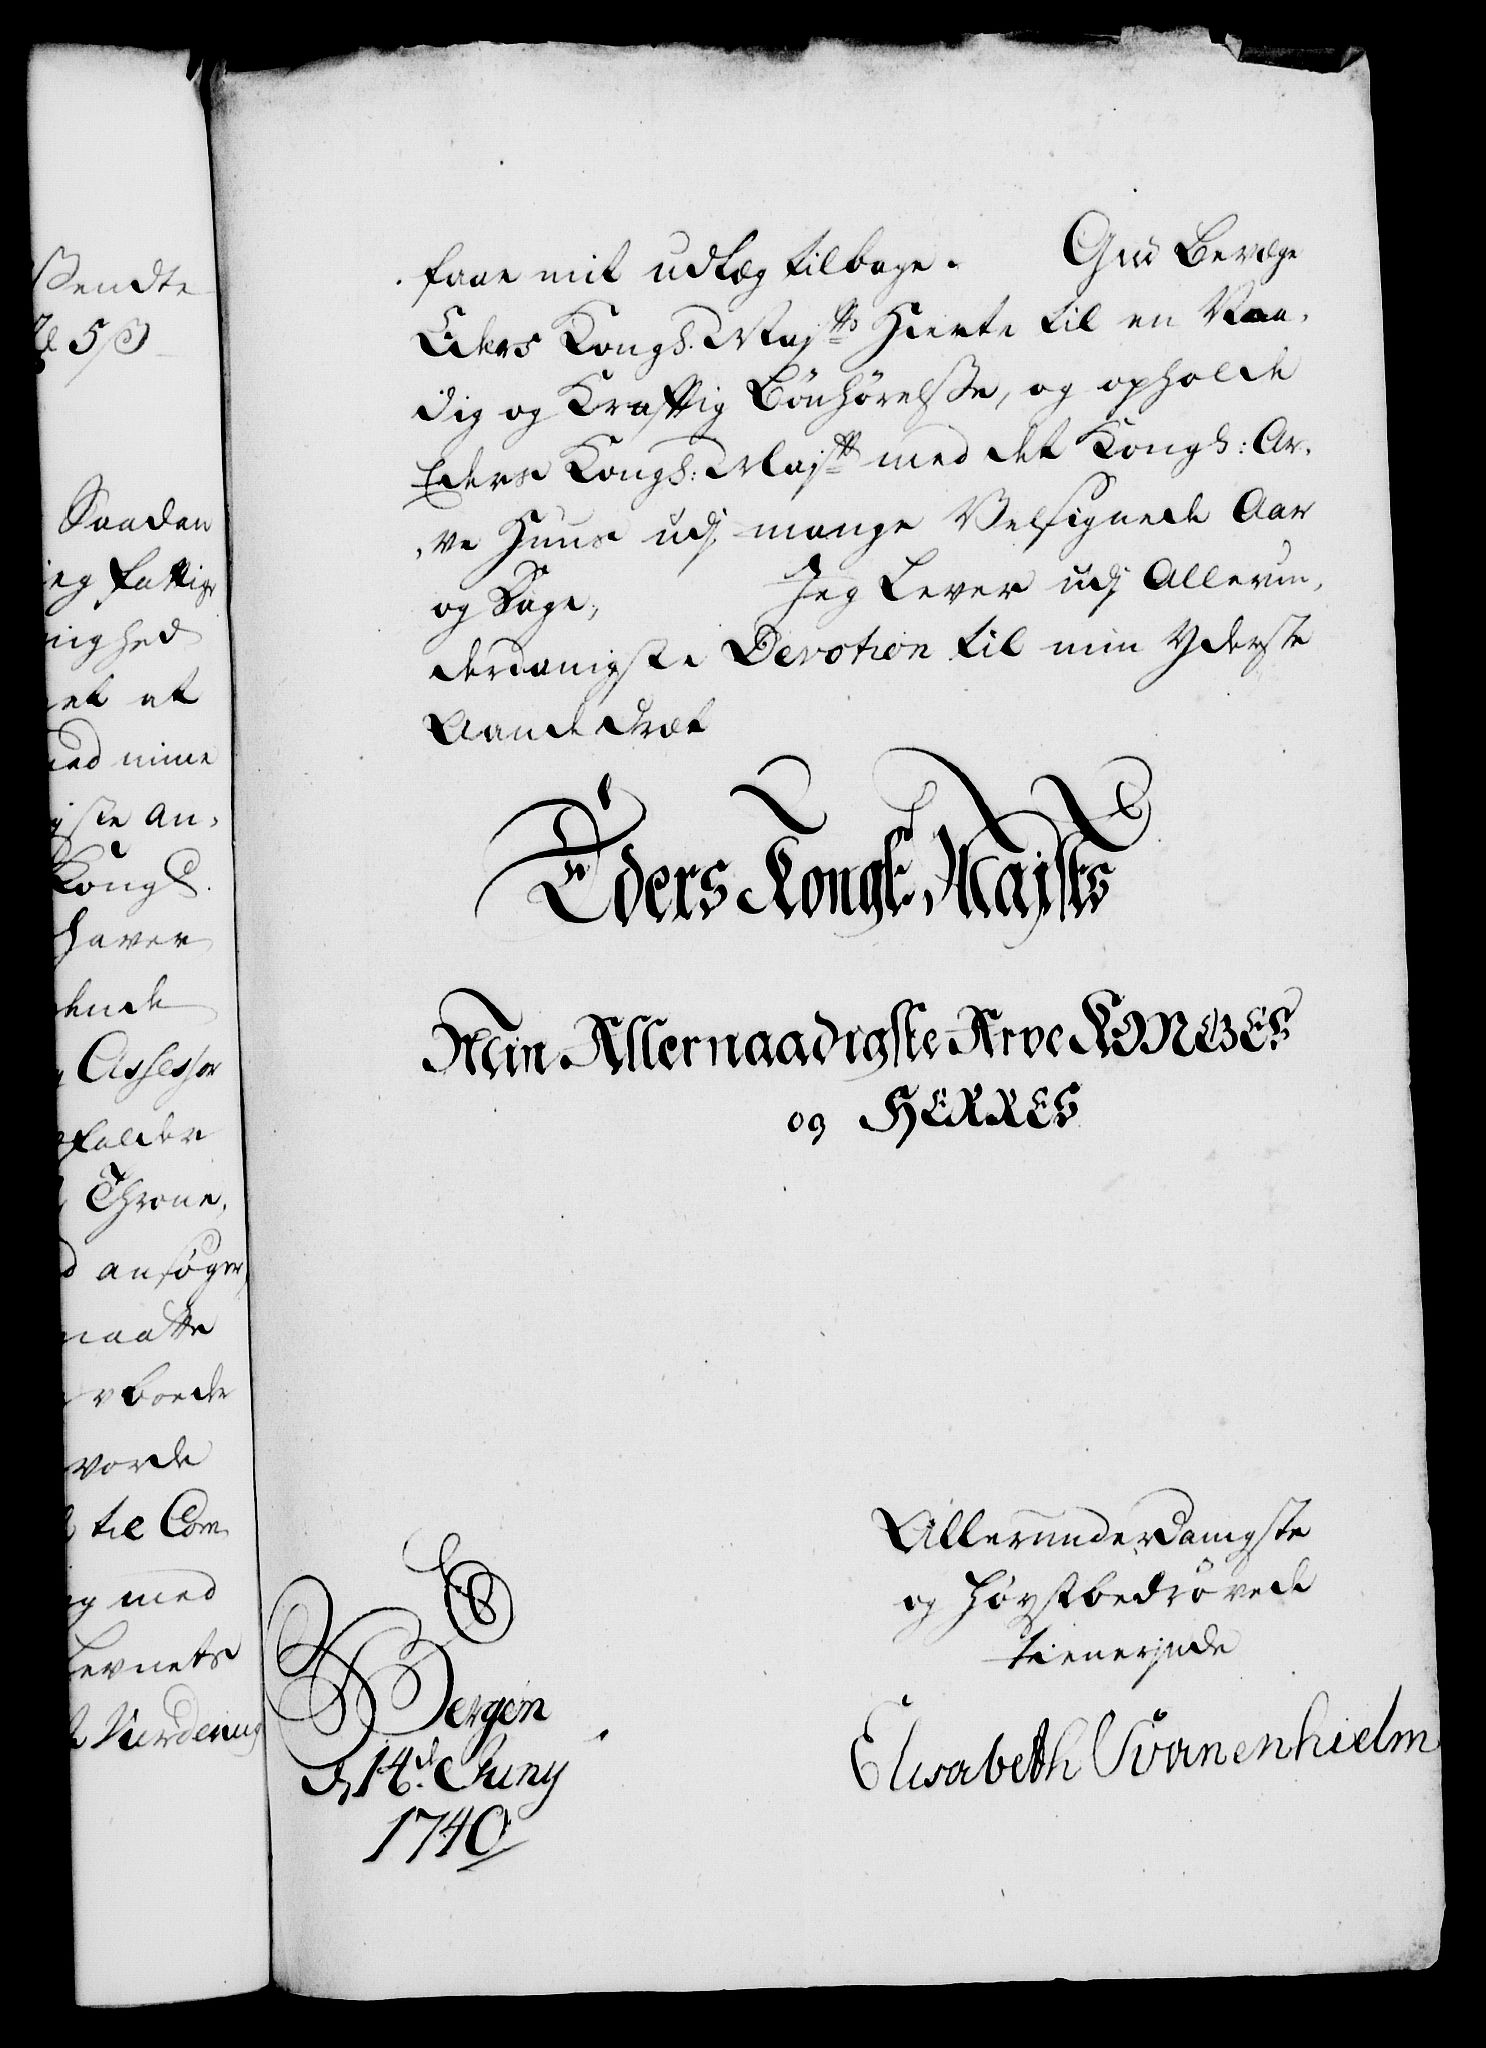 ßendte
5 ß
Saadan
ieg fattige
nighed
et at
med mine
gste An,
Kongl.
haver
dende
Assessor
falder
Throne,
ansøger,
maatte
vorde
til Com
og med
Levnets
Vurdering
faae mit udlæg tilbage. Gud Bevæge
Eders Kongl. Maj:ts Hierte til en Naa,
dig og Krafftig Bönhörelße, og opholde
Eders Kongl: Maj:tt med det Kongl: Ar,
,ve Huus udj mange Velsignede Aar
og Dage, Jeg Lever udj Allerun,
derdanigste Devotion til min Yderste
Aandedræt
Eders Kongl. Majsts
Min Allernaadigste Arve KONGES
og HERRES
Bergen
d. 14de Juny
1740
Allerunderdanigste
og høystbedrövede
tienerjnde
Elisabeth Svanenhielm